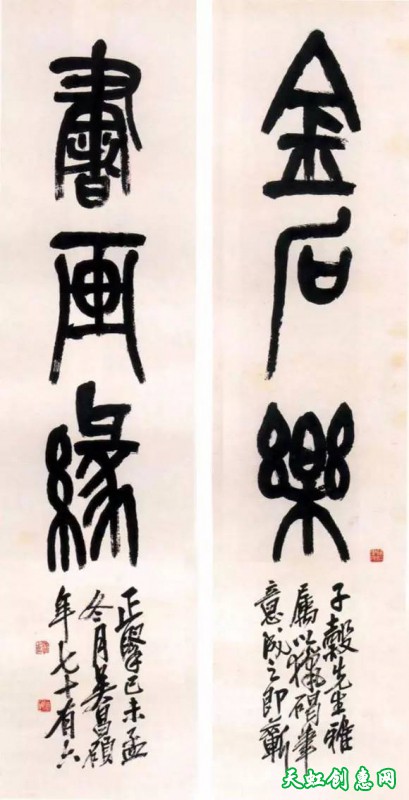 金石樂
子穀先生雅
屬以獵碣筆
意成之即蘄
書画緣
正 己未孟
冬月吳昌碩
年七十有六
天虹创惠网